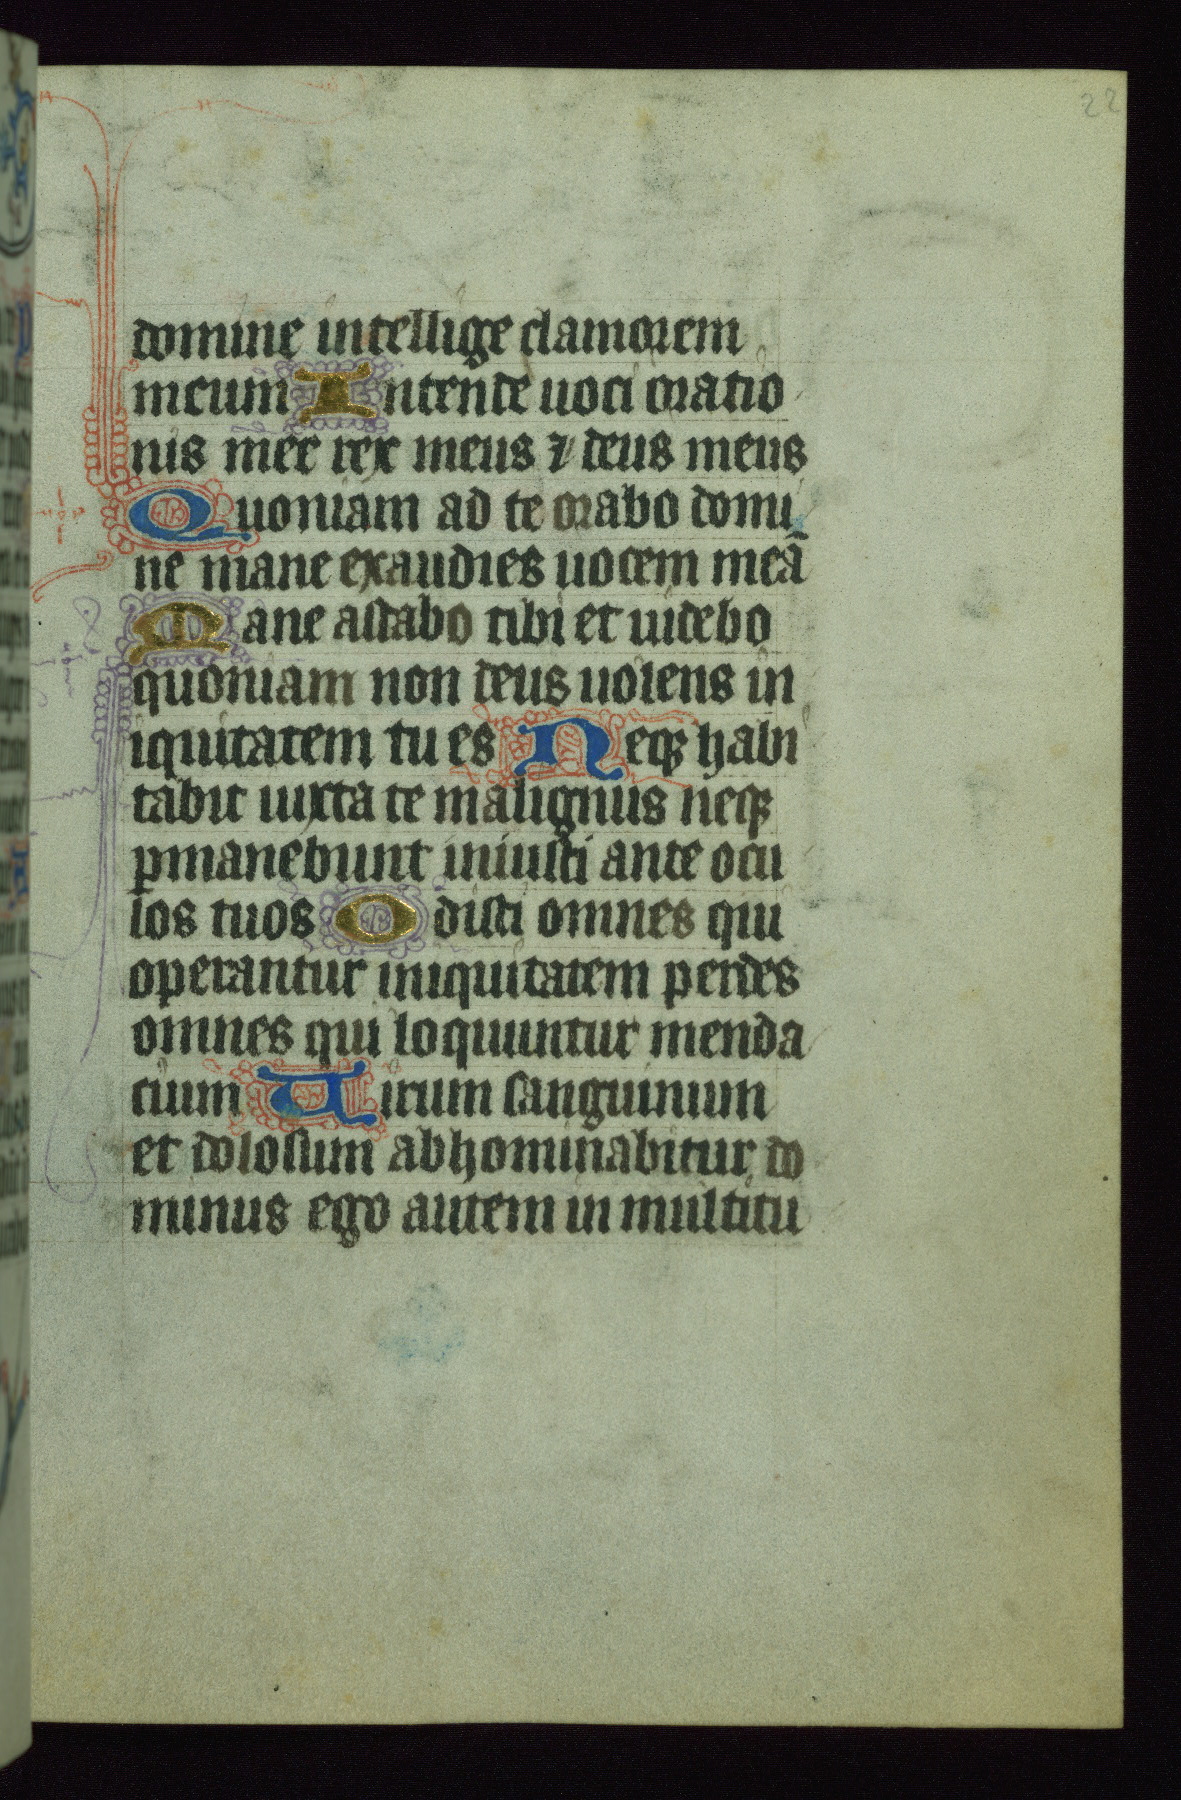 22
domine intellige clamorem
meum Intende uoci oratio
nis mee rex meus ⁊ deus meus
Quoniam ad te orabo domi
ne mane exaudies uocem meā
Mane astabo tibi et uidebo
quoniam non deus uolens in
iquitatem tu es Neqꝫ habi
tabit iuxta te malignus neqꝫ
ꝑmanebunt iniusti ante ocu
los tuos Odisti omnes qui
operantur iniquitatem perdes
omnes qui loquuntur menda
cium Uirum sanguinum
et dolosum abhominabitur do
minus ego autem in multitu